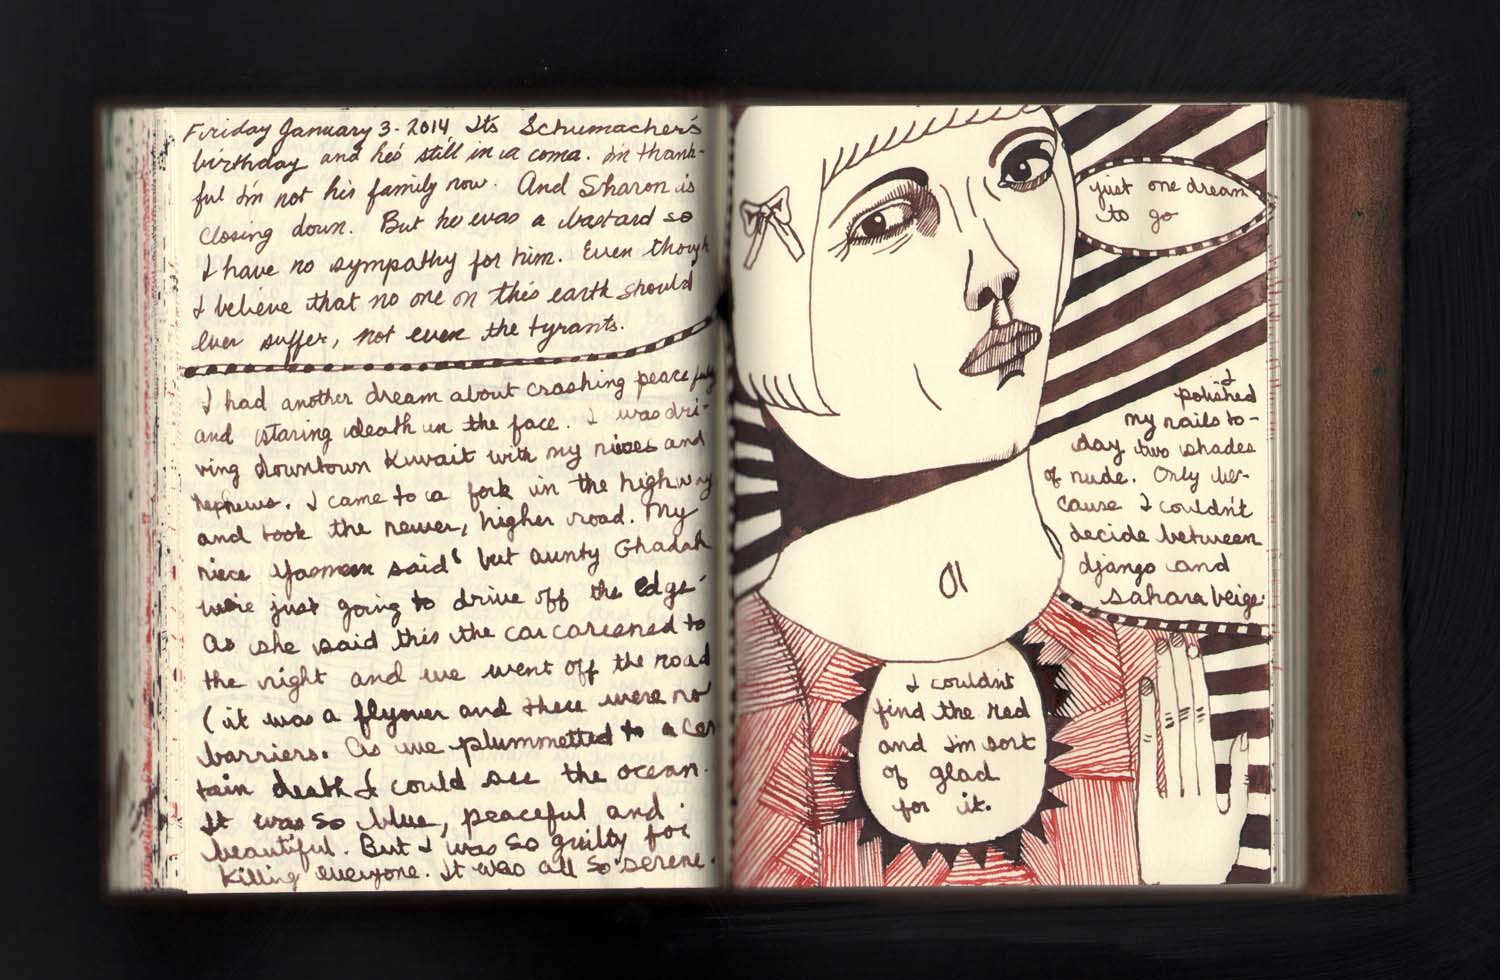 Firiday January 3-2014, Its Schumacher's
birthday and he's still in a coma. I'm thank-
ful I'm not his family now. And Sharon is
closing down. But he was a bastard so
I have no sympathy for him. Even though
I believe that no one on this earth should
ever suffer, not even the tyrants.
I had another dream about crashing peacefully
and staring death in the face. I was dri-
ving downtown Kuwait with my nieces and
nephews. I came to a fork in the highway
and took the newer, higher road. My
niece Yasmeen said "but aunty Ghadah
we're just going to drive off the edge"
As she said this the car careened to
the right and we went off the road
(it was a flyover and there were no
barriers. As we plummetted to a cer
tain death I could see the ocean.
It was so blue, peaceful and
beautiful. But I was so guilty for
killing everyone. It was all so serene.
just one dream
to go
I
polished
my nails to-
day two shades
of nude. Only be-
cause I couldn't
decide between
django and
sahara beige.
I couldn't
find the red
and I'm sort
of glad
for it.